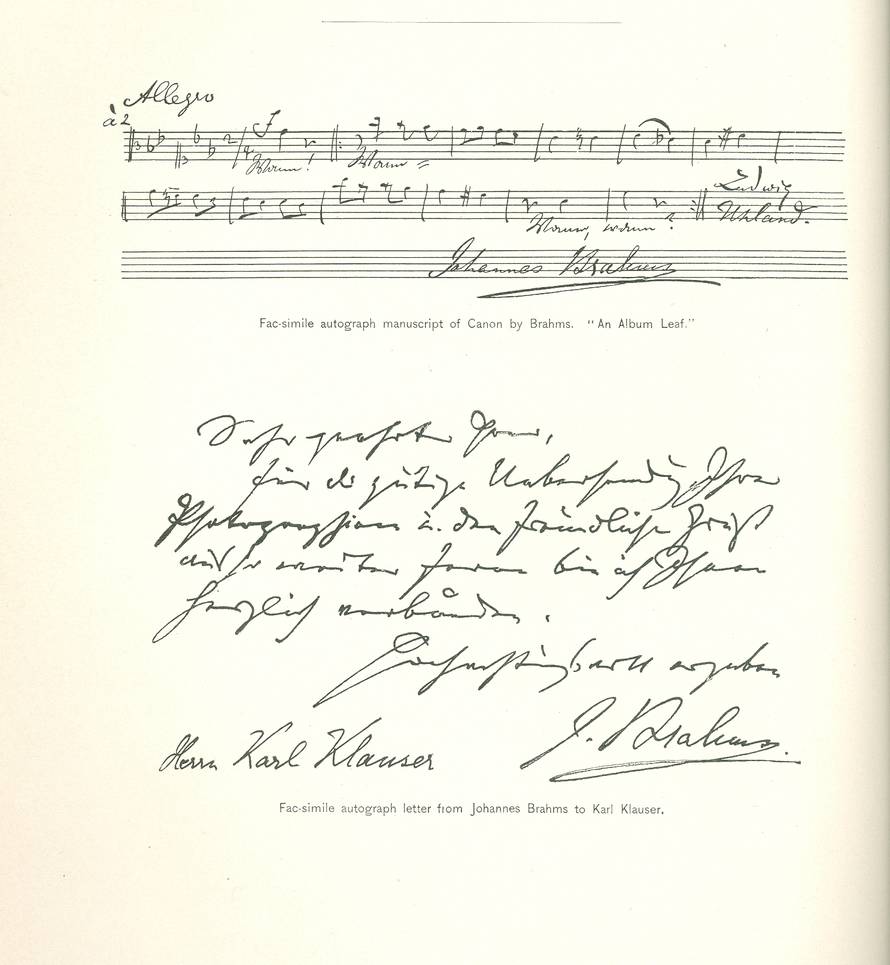 Allegro
à 2
Wann! Wann =
Ludwig
Wann, wann? Uhland.
Johannes Brahms
Fac-simile autograph manuscript of Canon by Brahms. "An Album Leaf."
Sehr geehrter Herr,
für die gütige Uebersendg Ihrer
Photographieen u. den freundlichen Gruß
aus so weiter Ferne bin ich Ihnen
herzlich verbunden.
Hochachtungsvoll ergeben
J. Brahms.
Herrn Karl Klauser
Fac-simile autograph letter from Johannes Brahms to Karl Klauser.